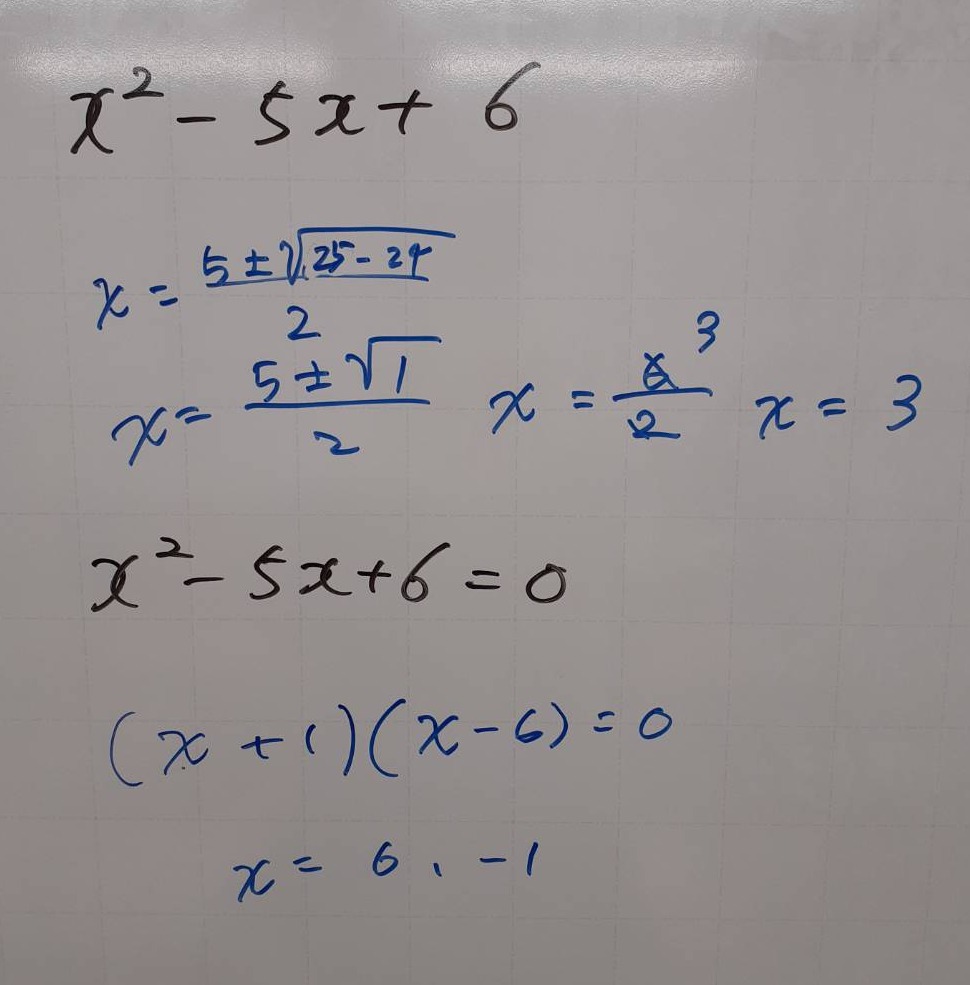 x² - 5x + 6
x = (5 ± √(25 - 24)) / 2
x = (5 ± √1) / 2  x = 6 / 2  3  x = 3
x² - 5x + 6 = 0
(x + 1)(x - 6) = 0
x = 6, -1